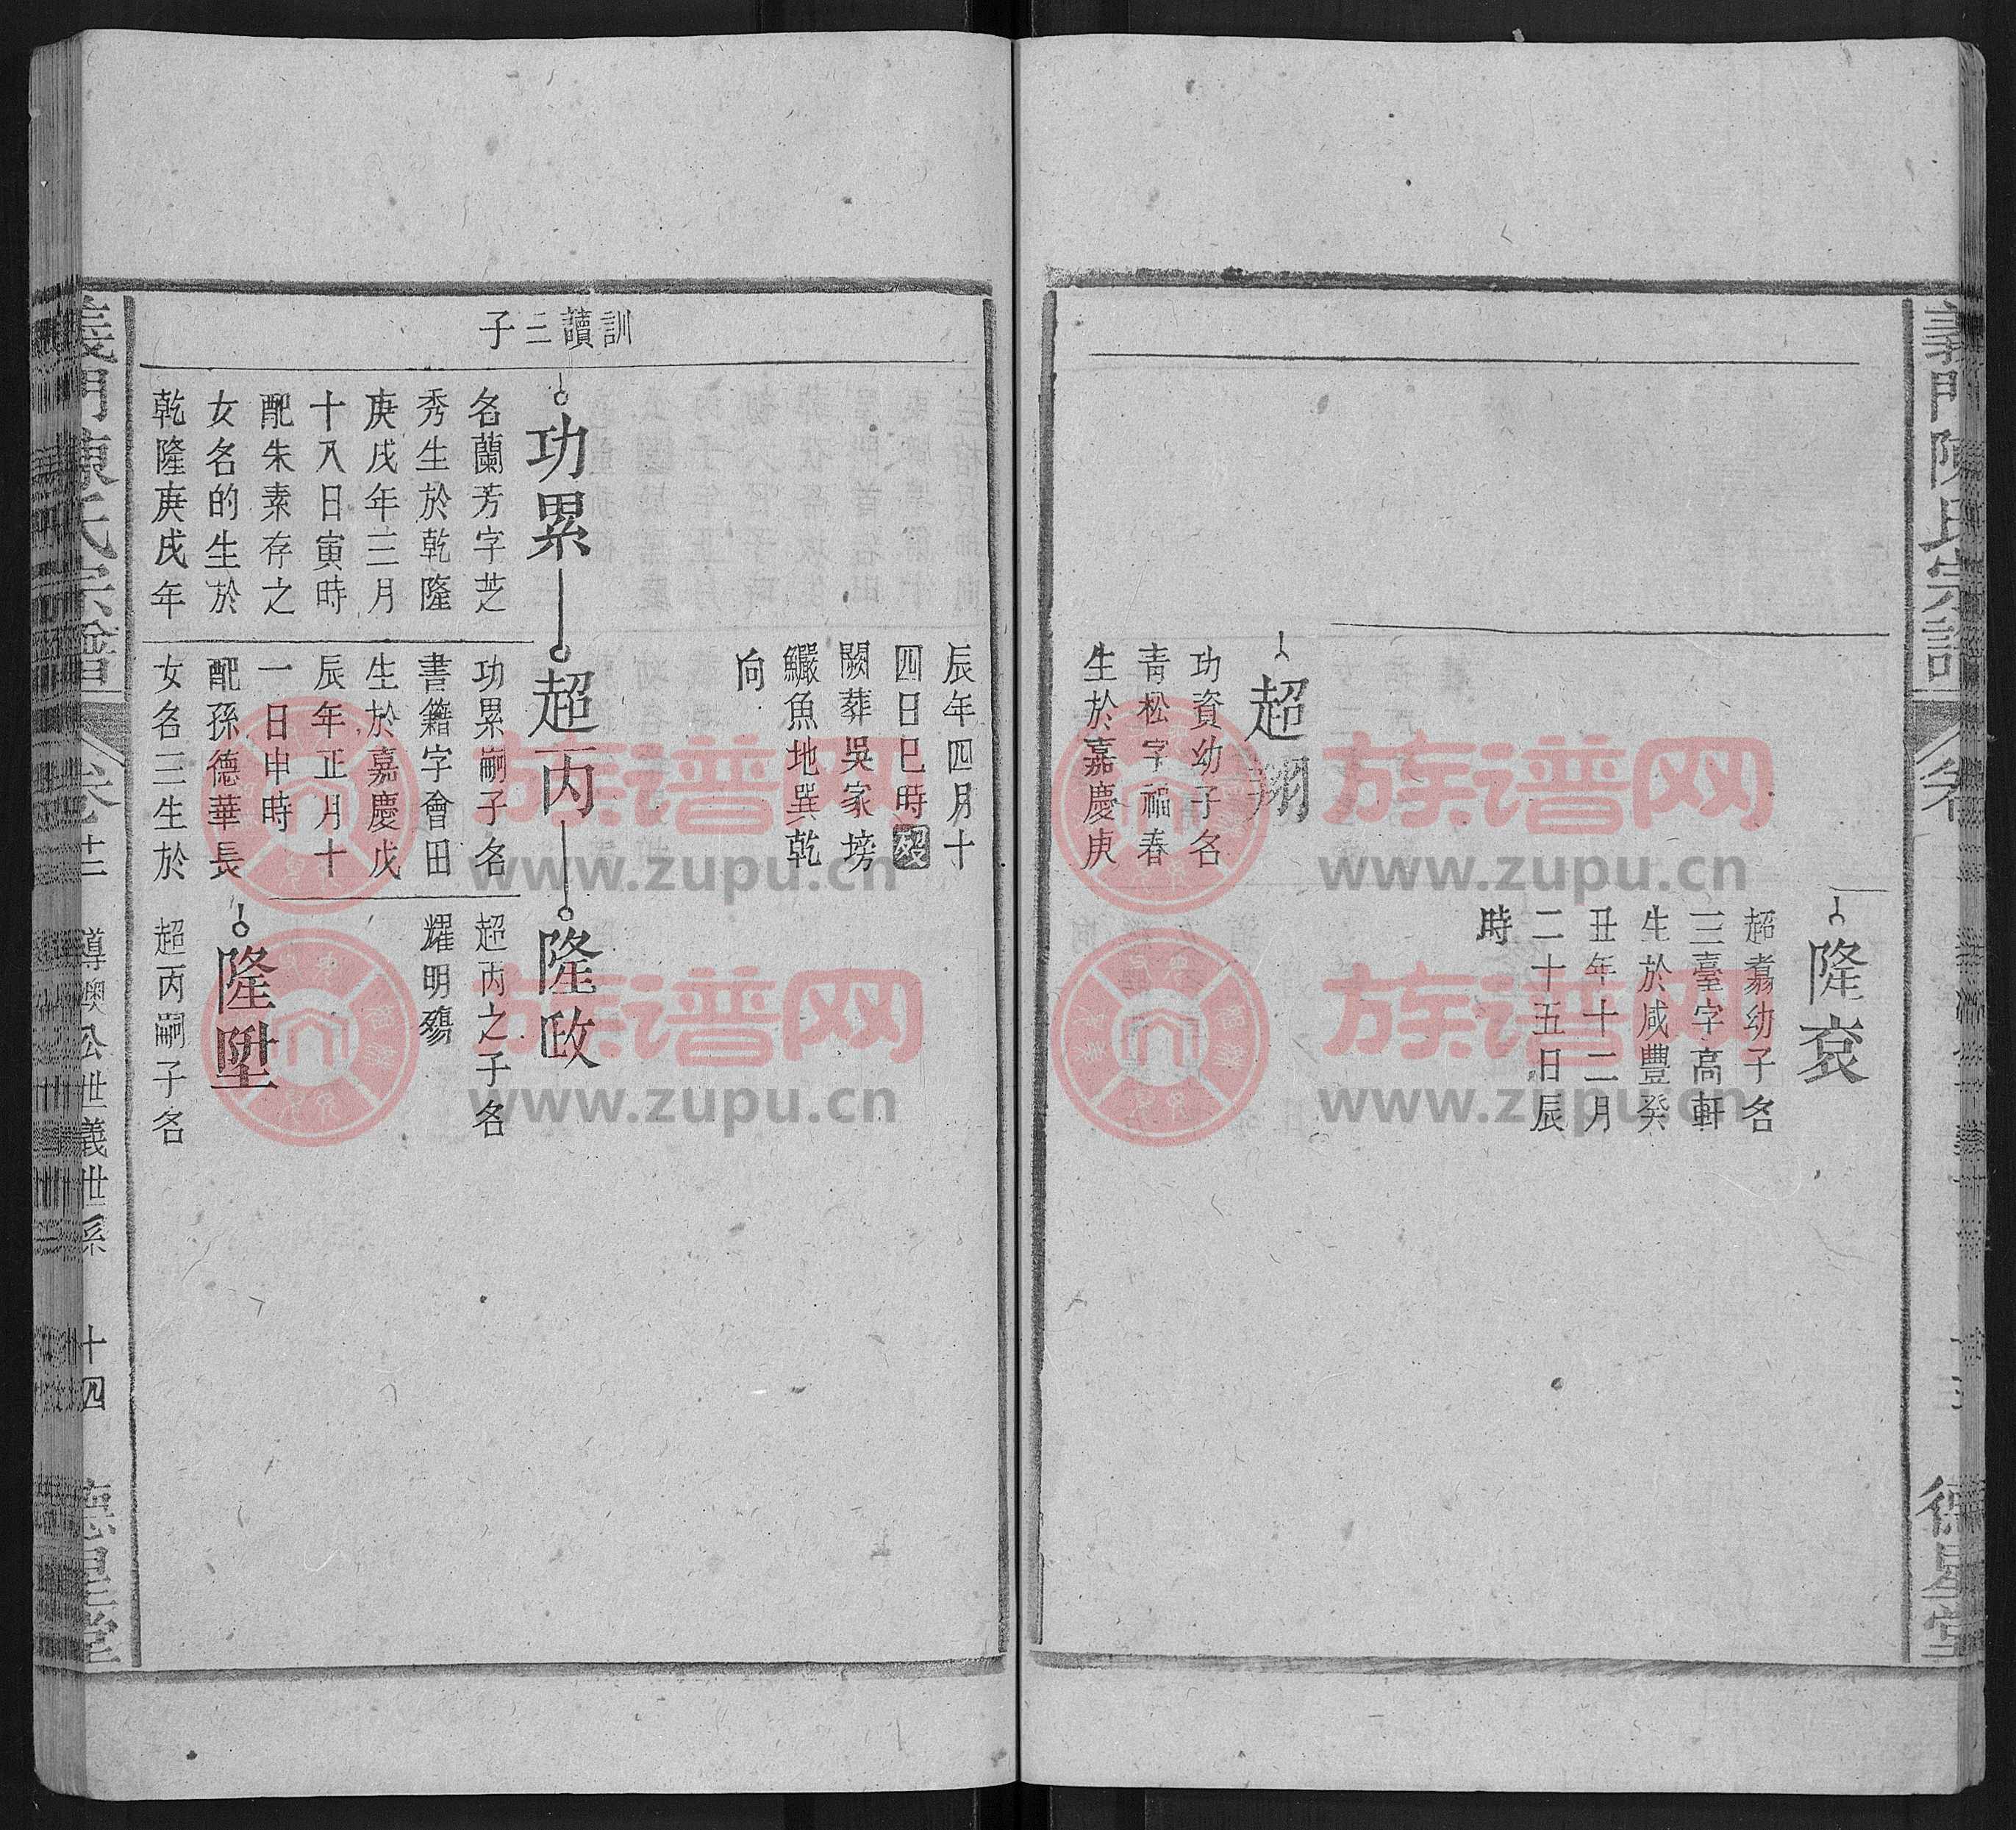 義門陳氏宗譜
隆袞
超翥幼子名
三臺字高軒
生於咸豐癸
丑年十二月
二十五日辰
時
超翔
功資幼子名
青松字福春
生於嘉慶庚
辰年四月十
四日巳時歿
闕葬吳家塝
鱺魚地巽乾
向
訓讀三子
功累
名蘭芳字芝
秀生於乾隆
庚戌年三月
十八日寅時
配朱素存之
女名的生於
乾隆庚戌年
超丙
功累嗣子名
書籍字會田
生於嘉慶戊
辰年正月十
一日申時
配孫德華長
女名三生於
隆政
超丙之子名
耀明殤
隆陞
超丙嗣子名
義門陳氏宗譜
卷十二
公世義世系
十四
德星堂
德星堂
族谱网
www.zupu.cn
族谱网
www.zupu.cn
族谱网
www.zupu.cn
族谱网
www.zupu.cn